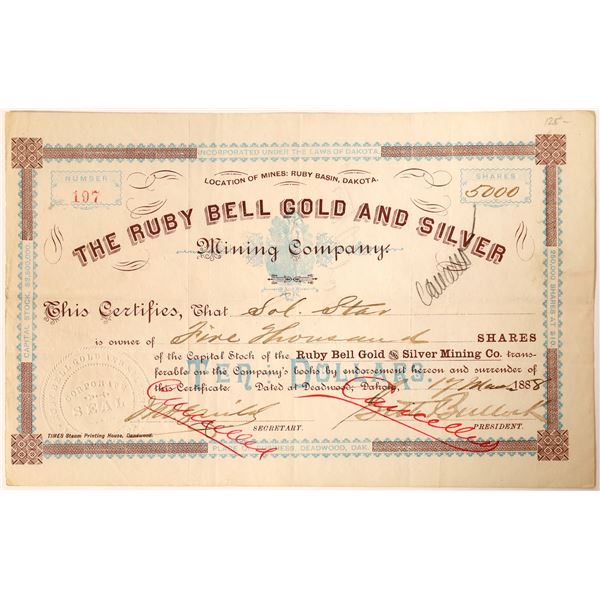 125-
INCORPORATED UNDER THE LAWS OF DAKOTA.
NUMBER
197
LOCATION OF MINES: RUBY BASIN, DAKOTA.
SHARES
5000
THE RUBY BELL GOLD AND SILVER
Mining Company.
CAPITAL STOCK,
250,000 SHARES AT $10.
Cancelled
This Certifies, That Sol. Star
is owner of Five Thousand SHARES
of the Capital Stock of the Ruby Bell Gold and Silver Mining Co. trans-
ferable on the Company's books by indorsement hereon and surrender of
this Certificate. Dated at Deadwood, Dakota, 17 1888
TEN DOLLARS.
SEAL
Cancelled
Cancelled
Bullock
SECRETARY.
PRESIDENT.
TIMES Steam Printing House, Deadwood.
PLACE OF BUSINESS, DEADWOOD, DAK.